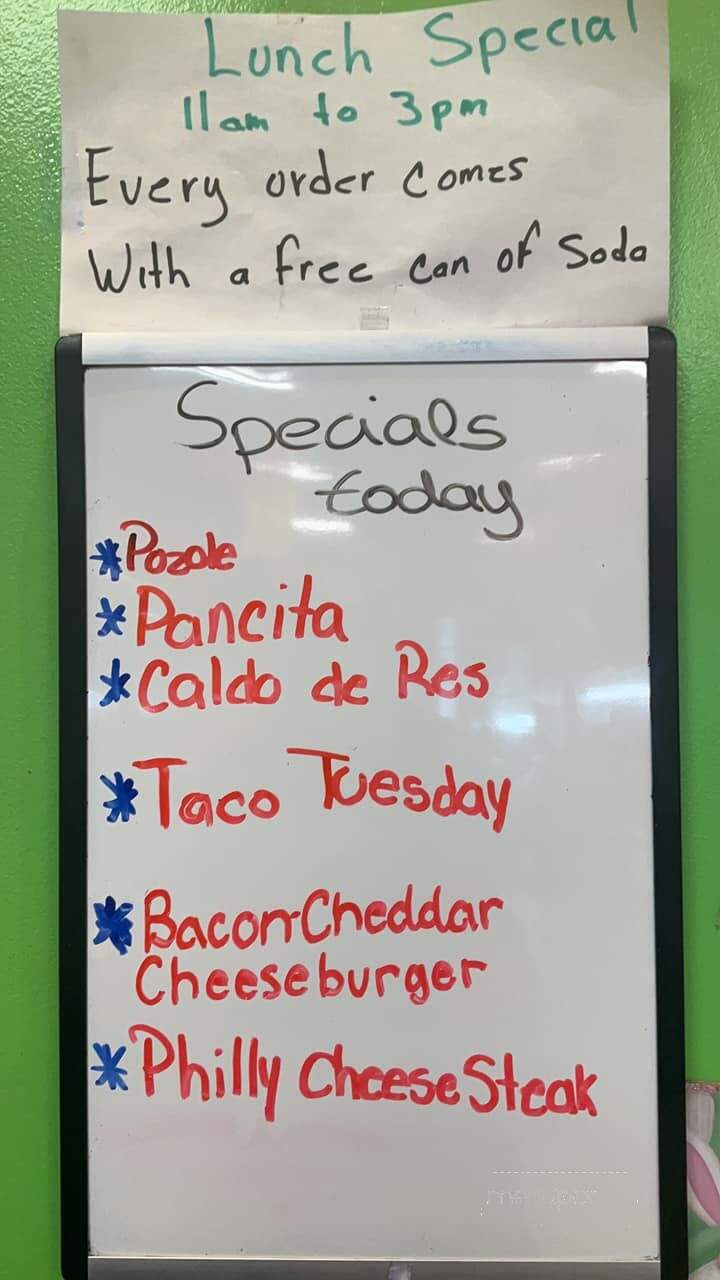 Lunch Special
11am to 3pm
Every order comes
With a free can of Soda
Specials
today
*Pozole
*Pancita
*Caldo de Res
*Taco Tuesday
*Bacon-Cheddar
Cheeseburger
*Philly Cheese Steak